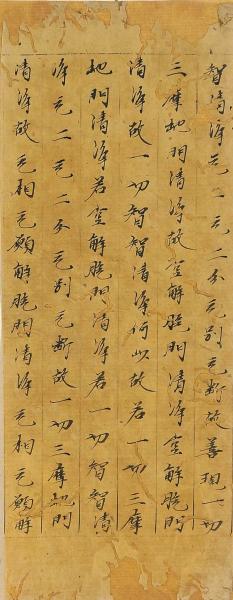 智清淨无二无二分无別无斷故善現一切
三摩地門清淨故空解脫門清淨空解脫門
清淨故一切智智清淨何以故若一切三摩
地門清淨若空解脫門清淨若一切智智清
淨无二无二分无別无斷故一切三摩地門
清淨故无相无願解脫門清淨无相无願解